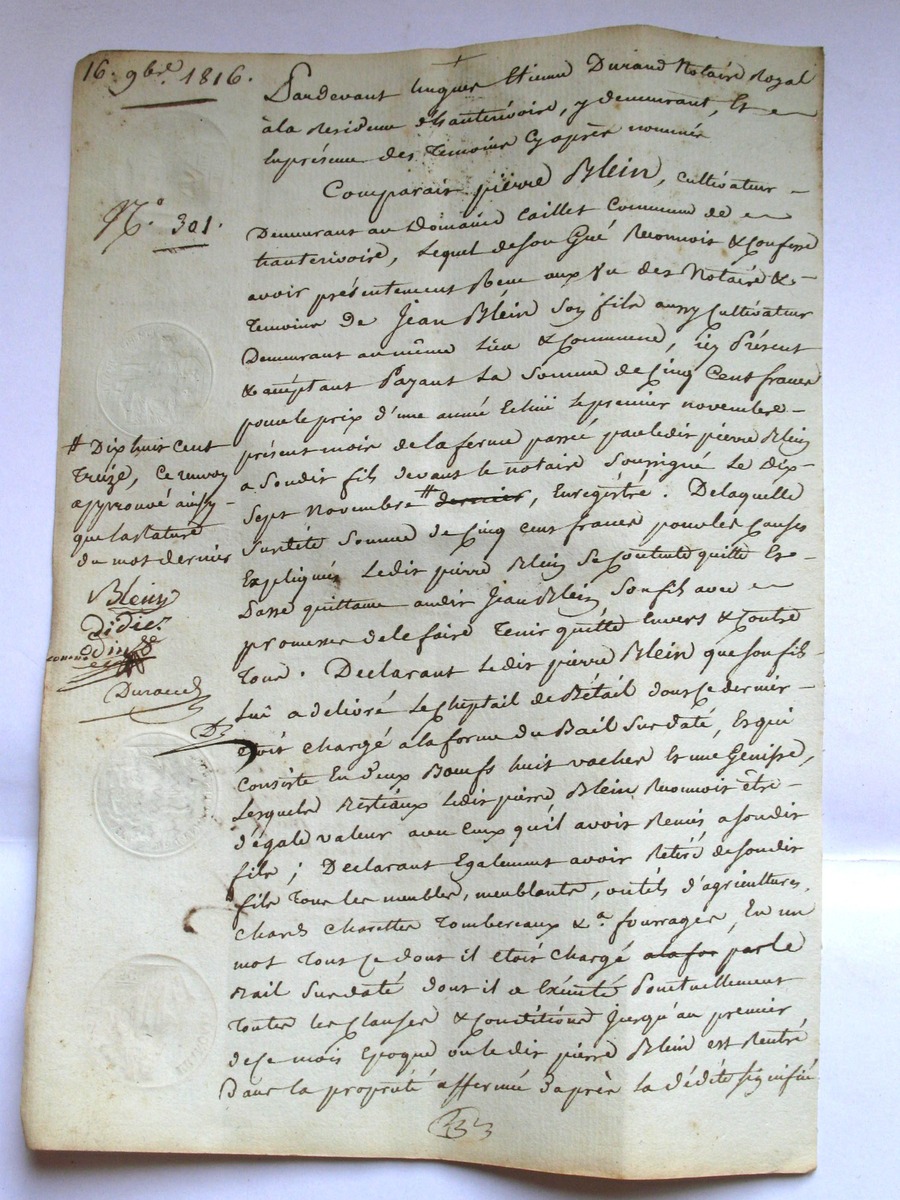 16. 9bre. 1816.
Pardevant hugues Etienne Durand Notaire Royal
à la Residence d'hauterivoire, y demeurant, Et
En présence des Temoins Cy après nommés
Comparait pierre Blein, cultivateur
N.° 301.
Demeurant au Domaine Caillet Commune de
hauterivoire, Lequel de son Gré Reconnoit & Confesse
avoir présentement Reçu aux Vu des Notaire &
Temoins de Jean Blein Son fils aussy Cultivateur
Demeurant au même Lieu & Commune, icy Présent
& acceptant Payant La Somme de Cinq Cent francs
pour le prix d'une année Echuë Le premier novembre
présent mois de la ferme passée par ledit pierre Blein
a Soudit fils devant le notaire Soussigné Le Dix
Sept Novembre # dernier, Enregistré. De laquelle
Susdite Somme de Cinq cent francs pour les Causes
Expliquées Ledit pierre Blein Se Contente quitte Et
Passe quittance audit Jean Blein Son fils avec
promesses de le faire Tenir quitte Envers & Contre
Tous. Declarant Ledit pierre Blein que son fils
Lui a delivré Le Cheptail de Bétail dont Ce dernier
etoit Chargé a la forme du Bail Susdaté, Et qui
Consiste En deux Boeufs huit vaches Et une Genisse,
Lesquels Bestiaux Ledit pierre Blein Reconnoit être
d'égale valeur avec Ceux qu'il avoit Remis a Soudit
fils; Declarant Egalement avoir Retiré de Soudit
fils Tous les meubles, meublants, outils d'agricultures,
Chards Charettes Tombereaux &a. fourrages, En un
mot Tout Ce dont il etoit Chargé a la for par le
Bail Susdaté dont il a Exécuté Ponctuellement
Toutes les Clauses & Conditions Jusqu'au premier
de Ce mois Epoque ou ledit pierre Blein est Rentré
Dans la propriété affermée d'après la dédite Signifiée
# Dix huit cent
Treize, Ce renvoy
approuvé ainsy
que la rature
du mot dernier
Blein
Didier
Durand